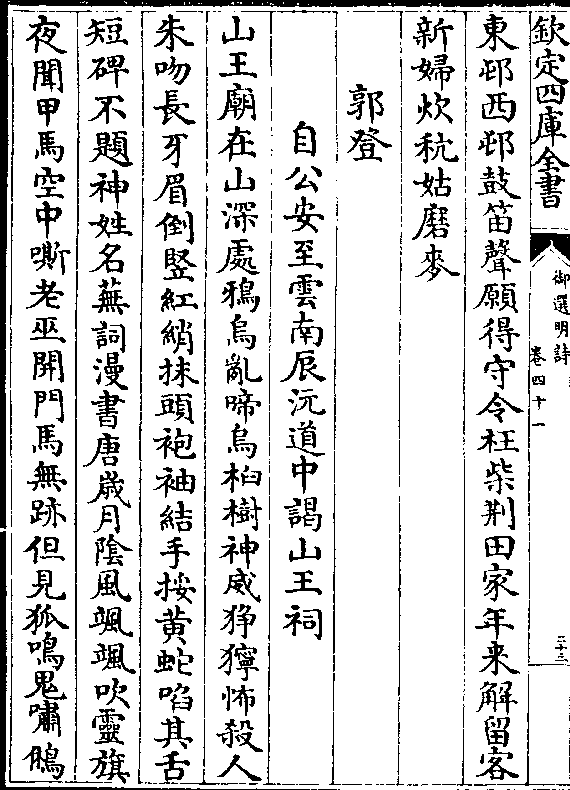 欽定四庫全書
御選明詩
卷四十一
二十三
東邨西邨鼓笛聲願得守令枉柴荆田家年来解留客
新婦炊秔姑磨麥
郭登
自公安至雲南辰沅道中謁山王祠
山王廟在山深處鴉烏亂啼烏桕樹神威猙獰怖殺人
朱吻長牙眉倒竪紅綃抹頭袍袖結手挼黄蛇啗其舌
短碑不題神姓名蕪詞漫書唐歲月陰風颯颯吹靈旗
夜聞甲馬空中嘶老巫開門馬無跡但見狐鳴鬼嘯鵂